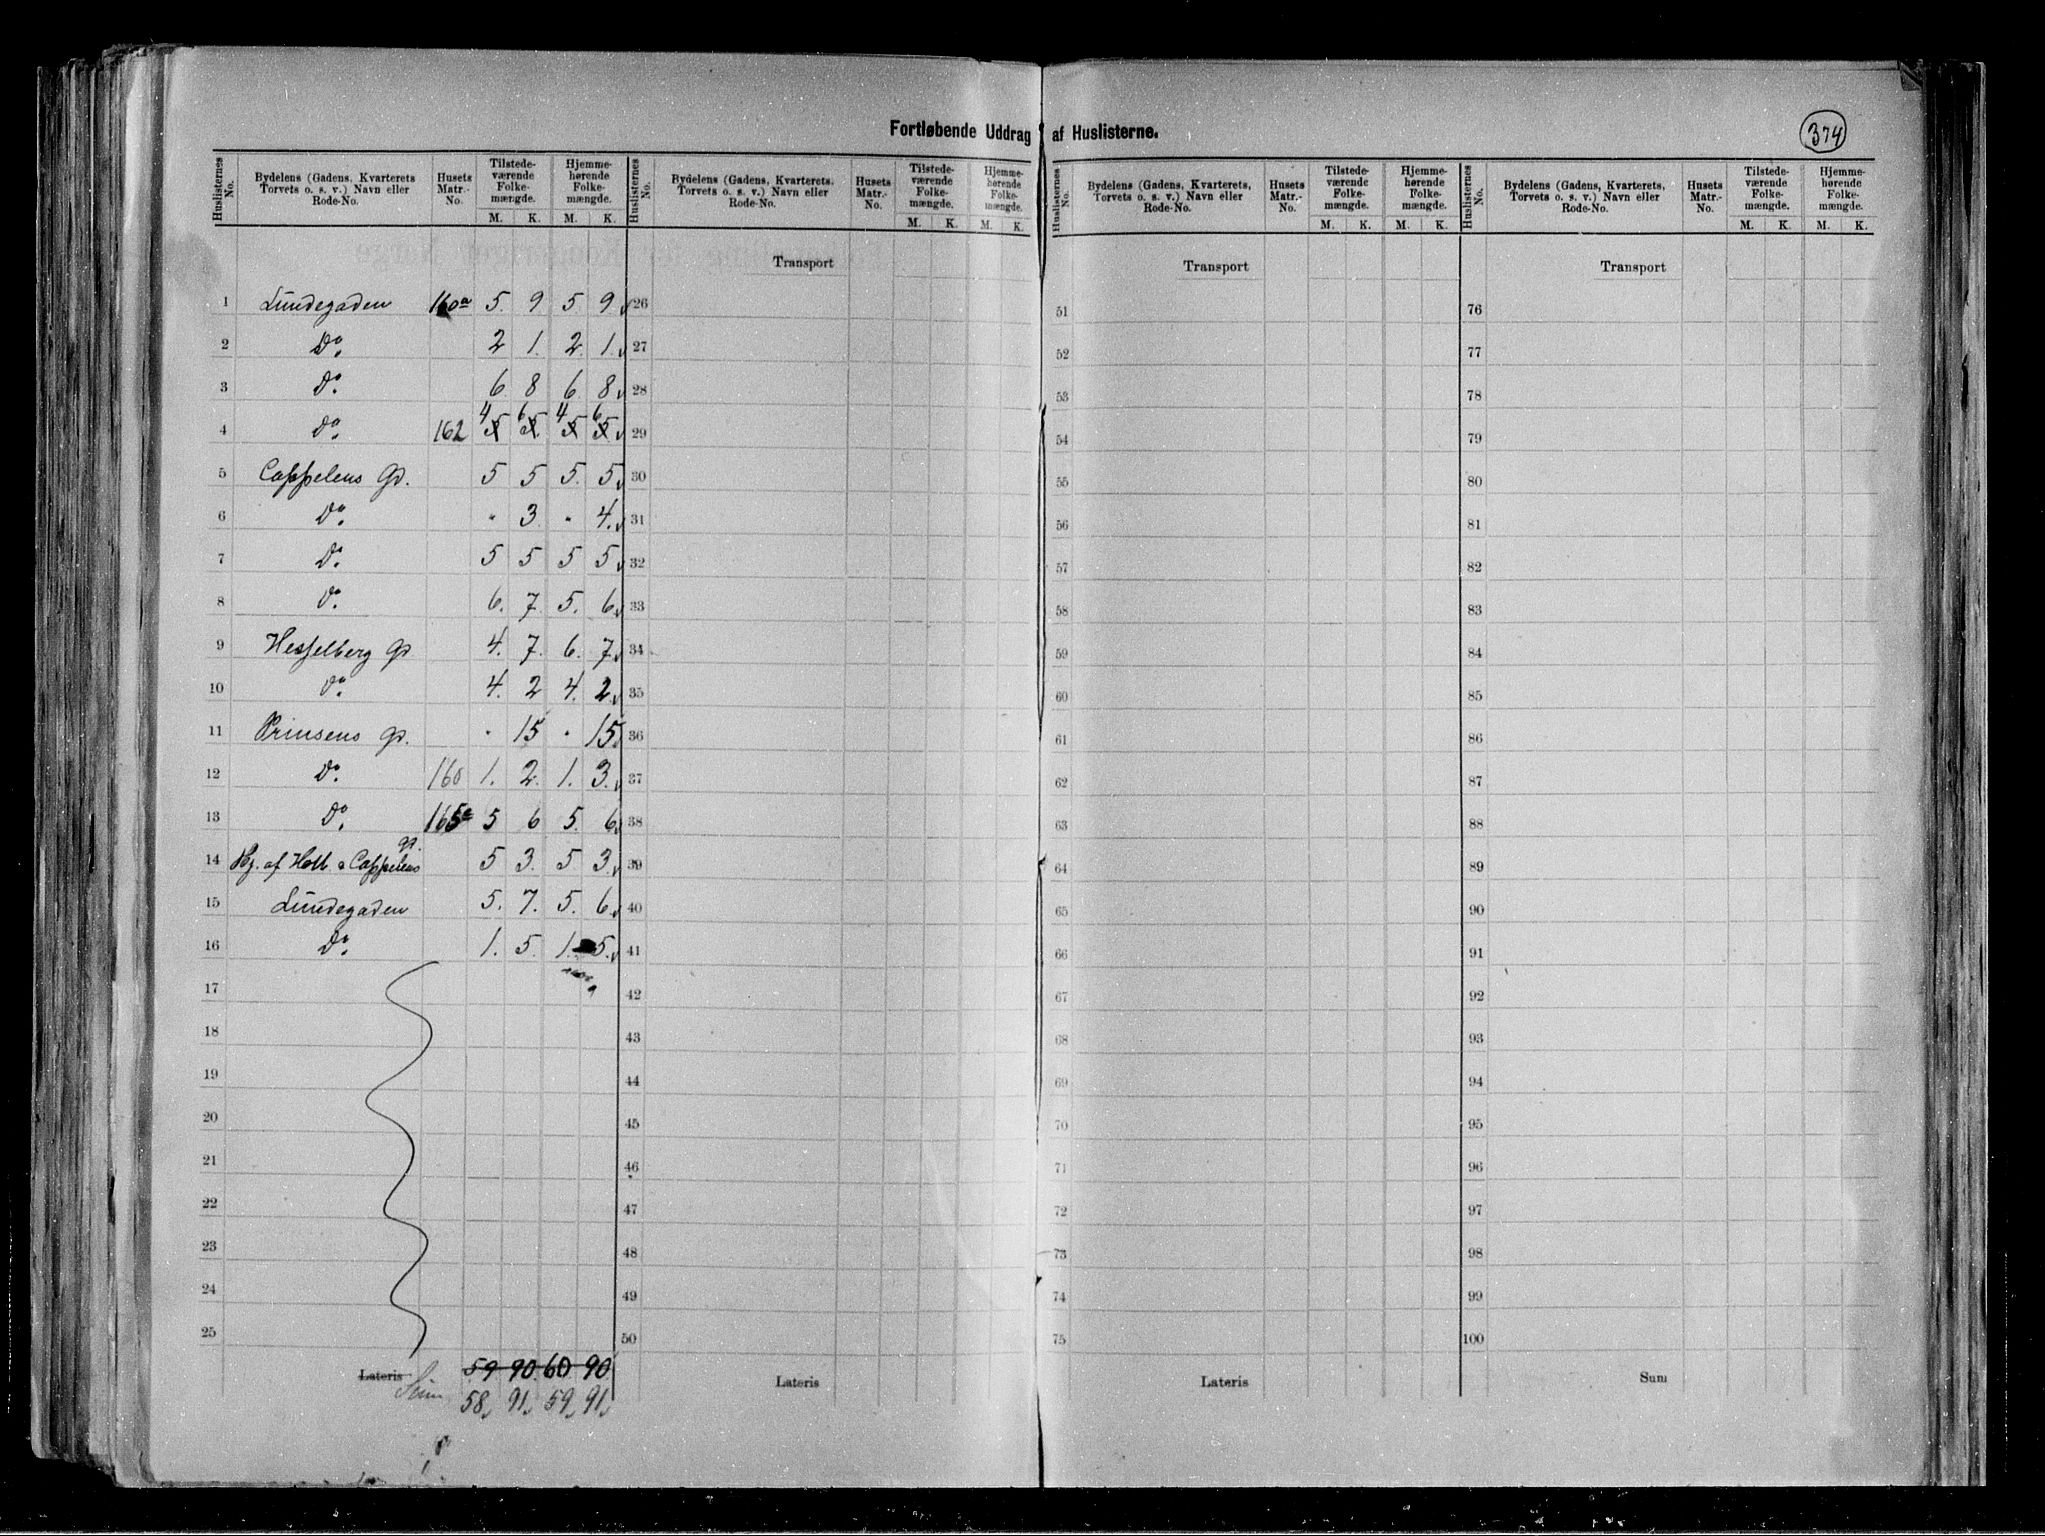 Fortløbende Uddrag af Huslisterne.
374
Huslisternes No. Bydelens (Gadens, Kvarterets Torvets o. s. v.) Navn eller Rode-No. Husets Matr.-No. Tilstedeværende Folkemængde. M. K. Hjemmehørende Folkemængde. M. K.
Huslisternes No. Bydelens (Gadens, Kvarterets, Torvets o. s. v.) Navn eller Rode-No. Husets Matr.-No. Tilstedeværende Folkemængde. M. K. Hjemmehørende Folkemængde. M. K.
Huslisternes No. Bydelens (Gadens, Kvarterets, Torvets o. s. v.) Navn eller Rode-No. Husets Matr.-No. Tilstedeværende Folkemængde. M. K. Hjemmehørende Folkemængde. M. K.
Huslisternes No. Bydelens (Gadens, Kvarterets, Torvets o. s. v.) Navn eller Rode-No. Husets Matr.-No. Tilstedeværende Folkemængde. M. K. Hjemmehørende Folkemængde. M. K.
Transport Transport Transport
1 Lundegaden 160a 5. 9 5 9 26 51 76
2 Do. 2 1. 2. 1. 27 52 77
3 Do. 6 8 6 8 28 53 78
4 6 4 6
4 Do. 162 5 5. 5 5 29 54 79
5 Cappelens Gd. 5 5 5. 5 30 55 80
6 Do. " 3 " 4. 31 56 81
7 Do. 5 5 5 5 32 57 82
8 Do. 6. 7. 5. 6 33 58 83
9 Hesselberg Gd 4. 7. 6. 7 34 59 84
10 Do. 4. 2 4. 2 35 60 85
11 Prinsens Gd. " 15 " 15 36 61 86
12 Do. 160 1. 2. 1. 3. 37 62 87
13 Do. 165a 5 6 5. 6 38 63 88
14 af Cappelens Gd. 5 3. 5 3 39 64 89
15 Lundegaden 5. 7. 5. 6 40 65 90
16 Do. 1. 5. 1. 5. 41 66 91
17 42 67 92
18 43 68 93
19 44 69 94
20 45 70 95
21 46 71 96
22 47 72 97
23 48 73 98
24 49 74 99
25 50 75 100
Lateris 59 90 60 90 Lateris Lateris Sum
Sum 58 91 59 91